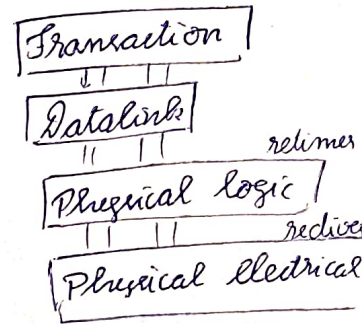 Transaction
Datalink
retimer
Physical logic
Physical Electrical